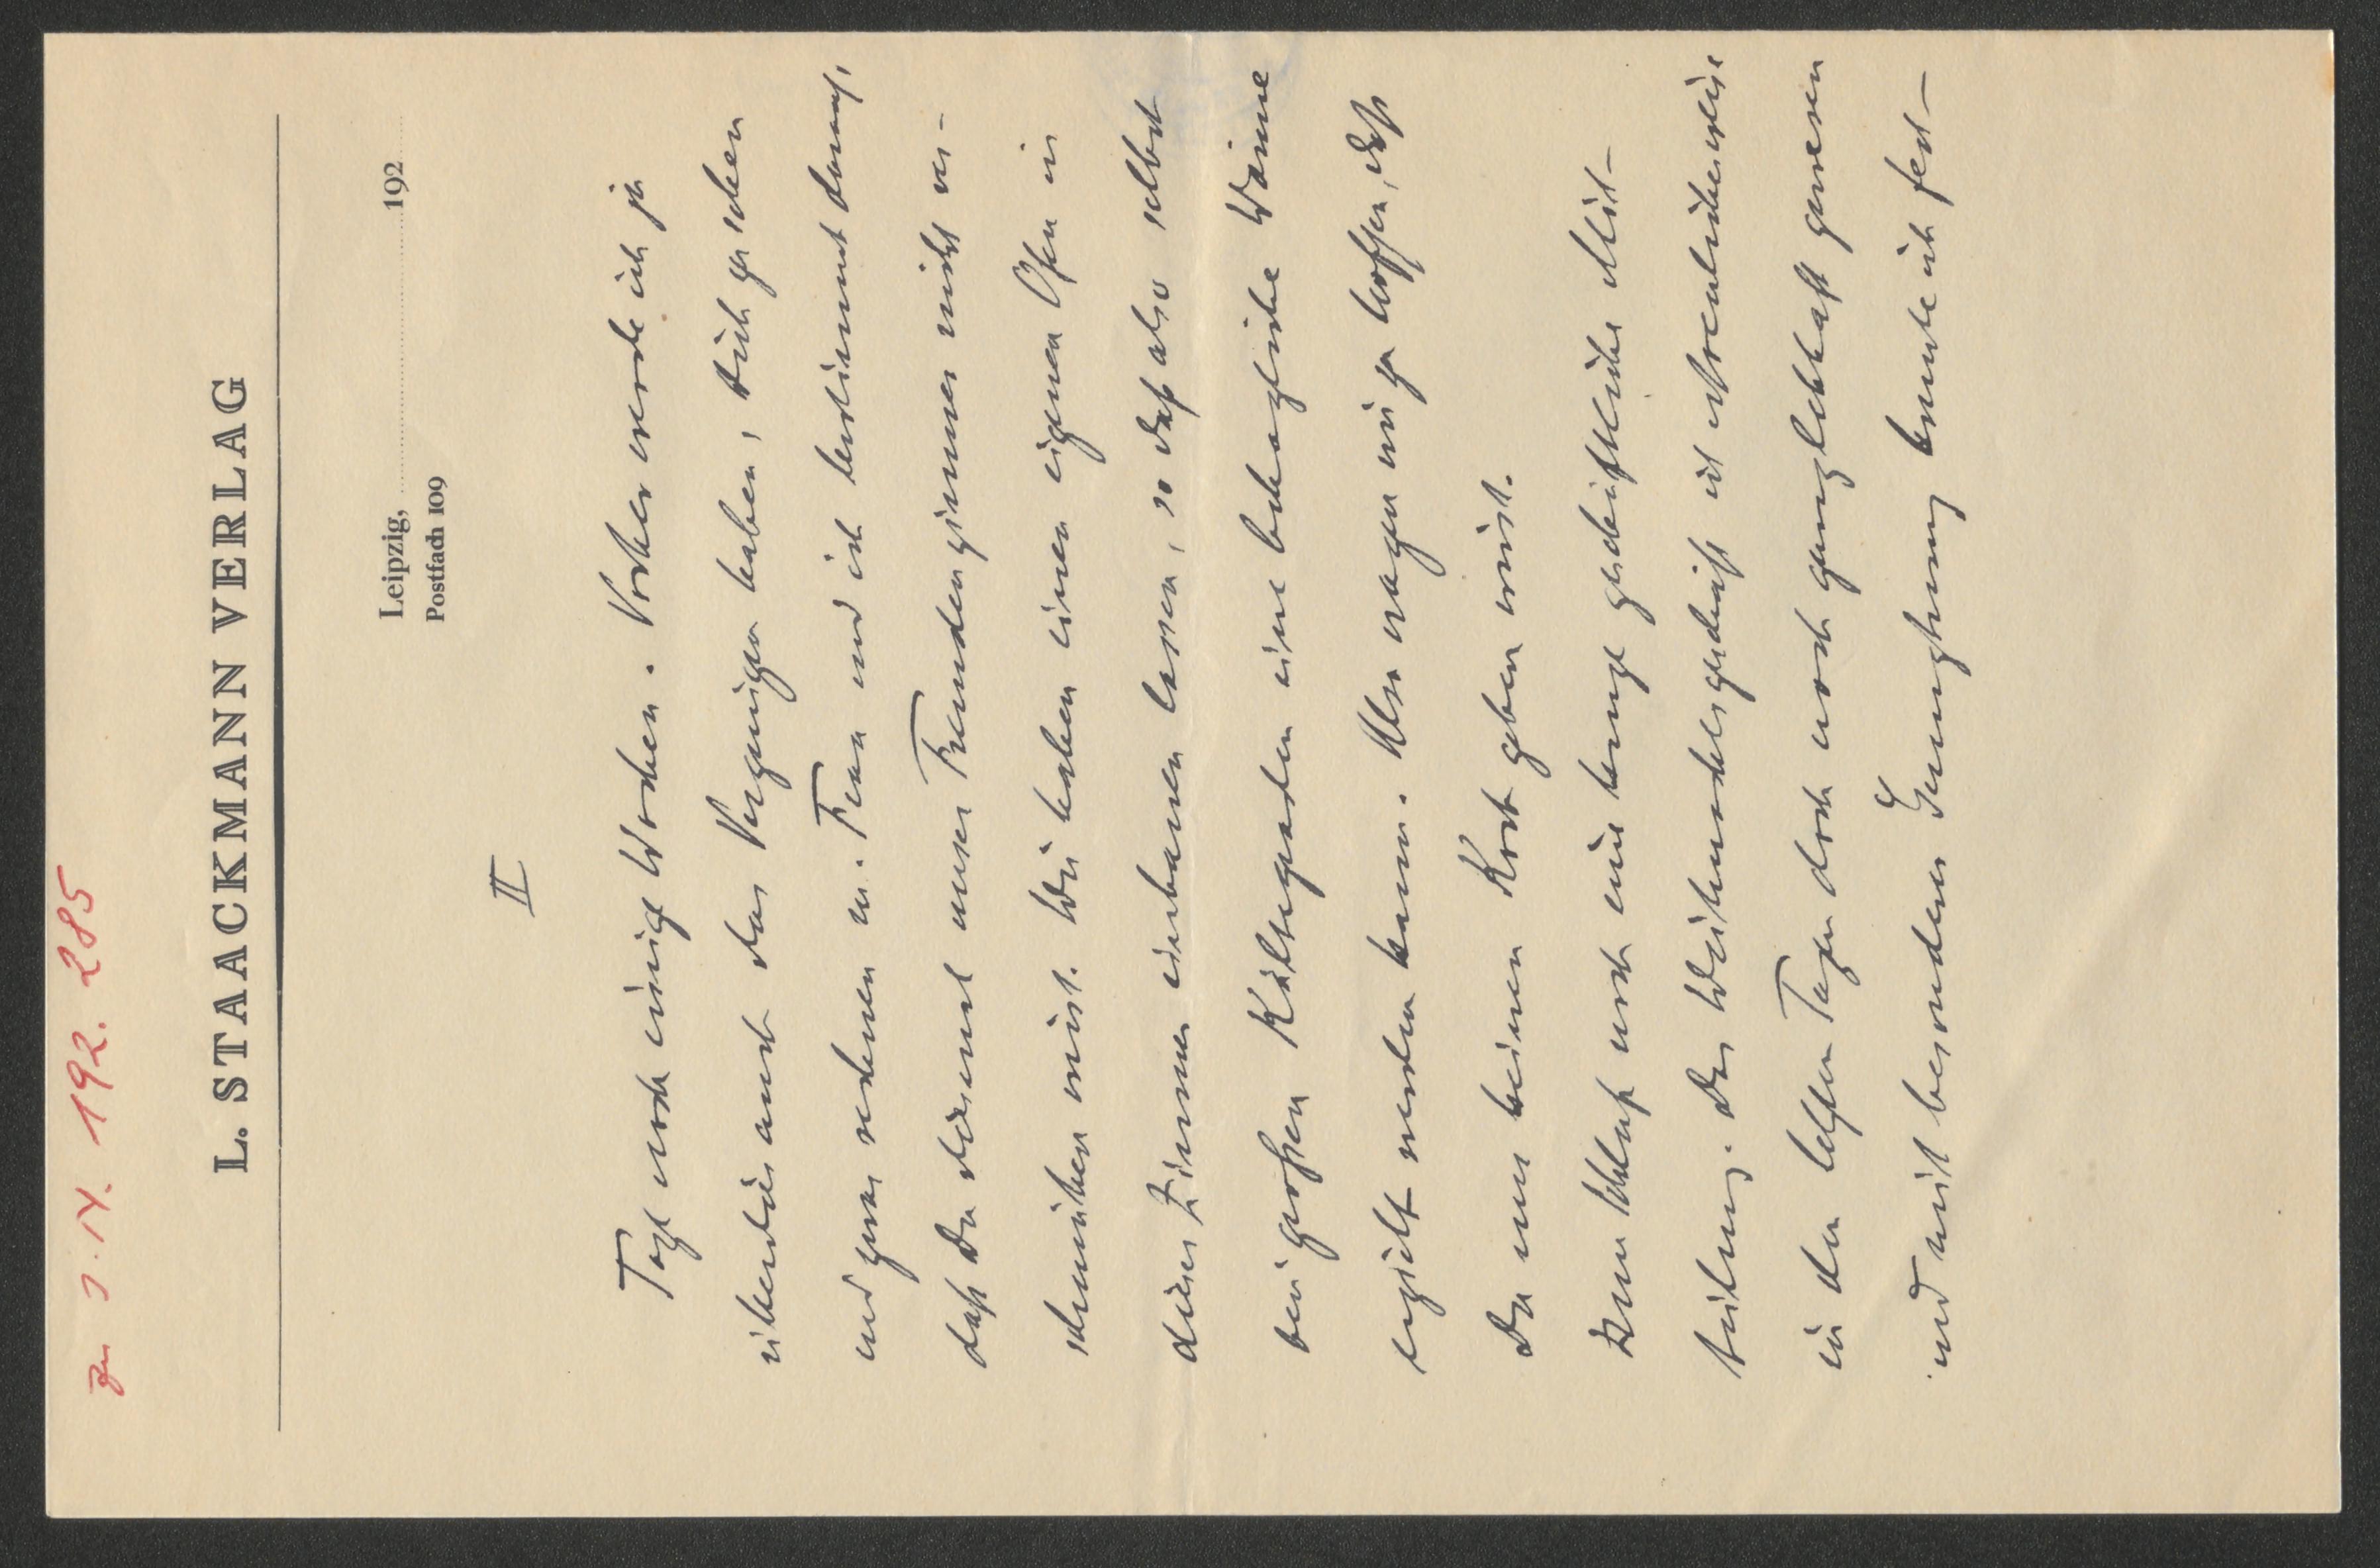 zu J.N. 192.285
L. STAACKMANN VERLAG
Leipzig, 192
Postfach 109
II
Tage noch einige Wochen. Vorher werde ich ja
überdies auch das Vergnügen haben, Dich zu sehen
und zwar rechnen m. Frau und ich bestimmt darauf,
daß Du diesmal unser Fremdenzimmer nicht ver-
schmähen wirst. Wir haben einen eigenen Ofen in
dieses Zimmer einbauen lassen, so daß also selbst
bei großen Kältegraden eine behagliche Wärme
erzielt werden kann. Also wagen wir zu hoffen, daß
Du uns keinen Korb geben wirst.
Zum Schluß noch eine kurze geschäftliche Mit-
teilung. Das Weihnachtsgeschäft ist erfreulicherweise
in den letzten Tagen doch noch ganz lebhaft gewesen
und mit besonderer Genugtuung konnte ich fest-